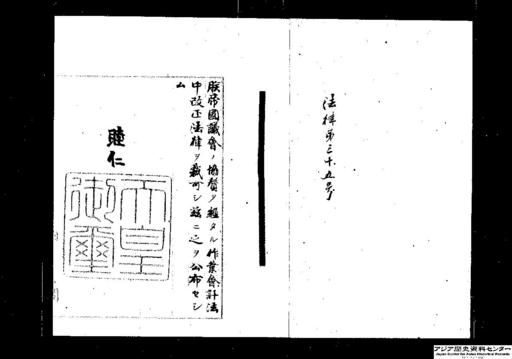 法律第三十五号
朕帝國議會ノ協賛ヲ經タル作業會計法
中改正法律ヲ裁可シ茲ニ之ヲ公布セシ
ム
睦仁
天皇
御璽
アジア歴史資料センター
Japan Center for Asian Historical Records